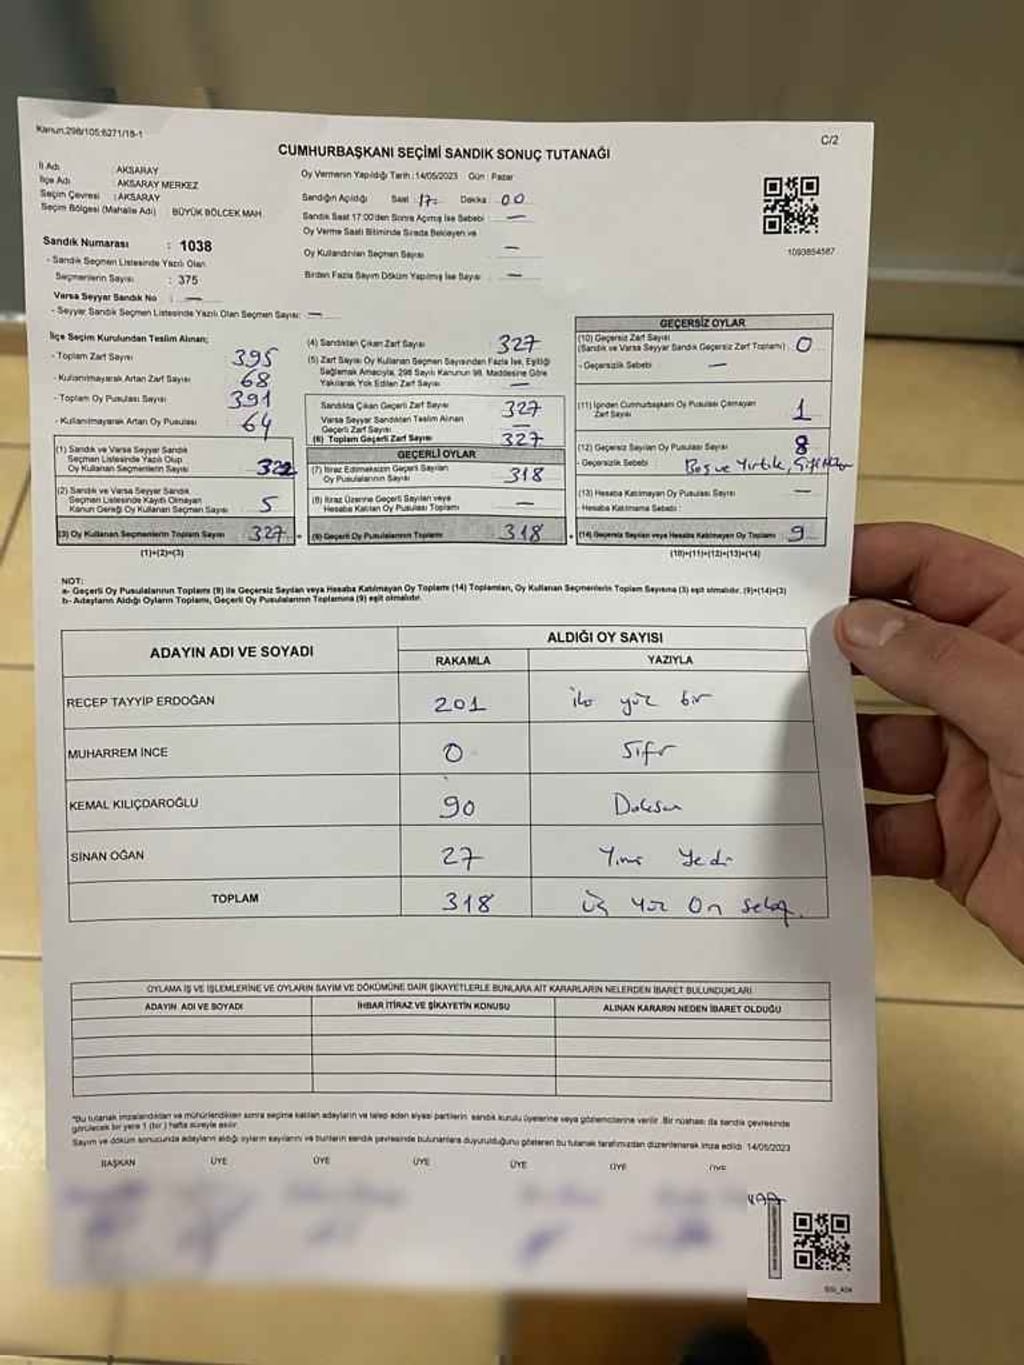 Kanun:298/105;6271/18-1
C/2
CUMHURBAŞKANI SEÇİMİ SANDIK SONUÇ TUTANAĞI
İl Adı : AKSARAY
İlçe Adı : AKSARAY MERKEZ
Seçim Çevresi : AKSARAY
Seçim Bölgesi (Mahalle Adı) BÜYÜK BÖLCEK MAH.
Sandık Numarası : 1038
- Sandık Seçmen Listesinde Yazılı Olan
Seçmenlerin Sayısı : 375
Varsa Seyyar Sandık No : —
- Seyyar Sandık Seçmen Listesinde Yazılı Olan Seçmen Sayısı: —
Oy Vermenin Yapıldığı Tarih :14/05/2023 Gün : Pazar
Sandığın Açıldığı Saat : 17 Dakika : 00
Sandık Saat 17:00'den Sonra Açılmış İse Sebebi : —
Oy Verme Saati Bitiminde Sırada Bekleyen ve
Oy Kullandırılan Seçmen Sayısı —
Birden Fazla Sayım Döküm Yapılmış İse Sayısı : —
1093854587
İlçe Seçim Kurulundan Teslim Alınan;
- Toplam Zarf Sayısı 395
- Kullanılmayarak Artan Zarf Sayısı 68
- Toplam Oy Pusulası Sayısı 391
- Kullanılmayarak Artan Oy Pusulası 64
(1) Sandık ve Varsa Seyyar Sandık
Seçmen Listesinde Yazılı Olup
Oy Kullanan Seçmenlerin Sayısı 322
(2) Sandık ve Varsa Seyyar Sandık
Seçmen Listesinde Kayıtlı Olmayan
Kanun Gereği Oy Kullanan Seçmen Sayısı 5
(3) Oy Kullanan Seçmenlerin Toplam Sayısı 327
(1)+(2)=(3)
(4) Sandıktan Çıkan Zarf Sayısı 327
(5) Zarf Sayısı Oy Kullanan Seçmen Sayısından Fazla İse, Eşitliği
Sağlamak Amacıyla, 298 Sayılı Kanunun 98. Maddesine Göre
Yakılarak Yok Edilen Zarf Sayısı —
Sandıkta Çıkan Geçerli Zarf Sayısı 327
Varsa Seyyar Sandıktan Teslim Alınan
Geçerli Zarf Sayısı —
(6) Toplam Geçerli Zarf Sayısı 327
GEÇERLİ OYLAR
(7) İtiraz Edilmeksizin Geçerli Sayılan
Oy Pusulalarının Sayısı 318
(8) İtiraz Üzerine Geçerli Sayılan veya
Hesaba Katılan Oy Pusulası Toplamı —
(9) Geçerli Oy Pusulalarının Toplamı 318
GEÇERSİZ OYLAR
(10) Geçersiz Zarf Sayısı
(Sandık ve Varsa Seyyar Sandık Geçersiz Zarf Toplamı) 0
- Geçersizlik Sebebi —
(11) İçinden Cumhurbaşkanı Oy Pusulası Çıkmayan
Zarf Sayısı 1
(12) Geçersiz Sayılan Oy Pusulası Sayısı 8
- Geçersizlik Sebebi Boş ve Yırtık,
(13) Hesaba Katılmayan Oy Pusulası Sayısı —
- Hesaba Katılmama Sebebi :
(14) Geçersiz Sayılan veya Hesaba Katılmayan Oy Toplamı 9
(10)+(11)+(12)+(13)=(14)
NOT:
a- Geçerli Oy Pusulalarının Toplamı (9) ile Geçersiz Sayılan veya Hesaba Katılmayan Oy Toplamı (14) Toplamları, Oy Kullanan Seçmenlerin Toplam Sayısına (3) eşit olmalıdır. (9)+(14)=(3)
b- Adayların Aldığı Oyların Toplamı, Geçerli Oy Pusulalarının Toplamına (9) eşit olmalıdır.
ADAYIN ADI VE SOYADI
ALDIĞI OY SAYISI
RAKAMLA YAZIYLA
RECEP TAYYİP ERDOĞAN 201 iki yüz bir
MUHARREM İNCE 0 Sıfır
KEMAL KILIÇDAROĞLU 90 Doksan
SİNAN OĞAN 27 Yirmi Yedi
TOPLAM 318 üç yüz On sekiz
OYLAMA İŞ VE İŞLEMLERİNE VE OYLARIN SAYIM VE DÖKÜMÜNE DAİR ŞİKAYETLERLE BUNLARA AİT KARARLARIN NELERDEN İBARET BULUNDUKLARI
ADAYIN ADI VE SOYADI İHBAR İTİRAZ VE ŞİKAYETİN KONUSU ALINAN KARARIN NEDEN İBARET OLDUĞU
*Bu tutanak imzalandıktan ve mühürlendikten sonra seçime katılan adayların ve talep eden siyasi partilerin sandık kurulu üyelerine veya gözlemcilerine verilir. Bir nüshası da sandık çevresinde
görülecek bir yere 1 (bir) hafta süreyle asılır.
Sayım ve döküm sonucunda adayların aldığı oyların sayılarını ve bunların sandık çevresinde bulunanlara duyurulduğunu gösteren bu tutanak tarafımızdan düzenlenerek imza edildi. 14/05/2023
BAŞKAN ÜYE ÜYE ÜYE ÜYE ÜYE ÜYE